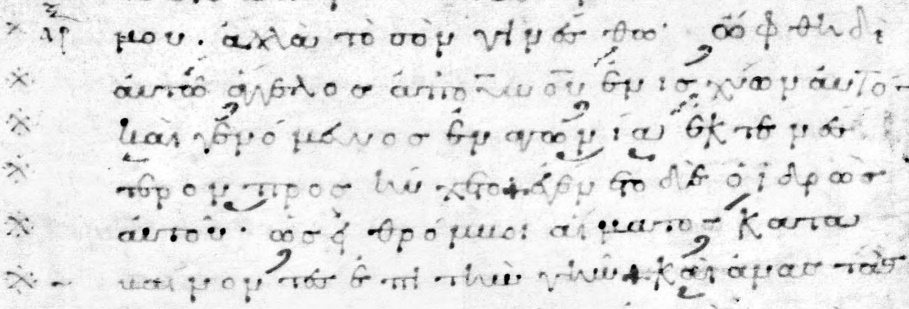 ※ μου. ἀλλὰ τὸ σὸν γινέσθω· ὤφθη δὲ
※ αὐτῶ ἄγγελος ἀπὸ ἐνισχύων αὐτό-
※ καὶ γενόμενος ἐν ἀγωνία ἐκτενέσ
※ τερον προσηύχετο + ἐγένετο δὲ ὁ ἱδρὼς
※ αὐτοῦ· ὡσεὶ θρόμβοι αἵματος κατα
※ βαίνοντες ἐπὶ τὴν γῆν + καὶ ἀναστὰς